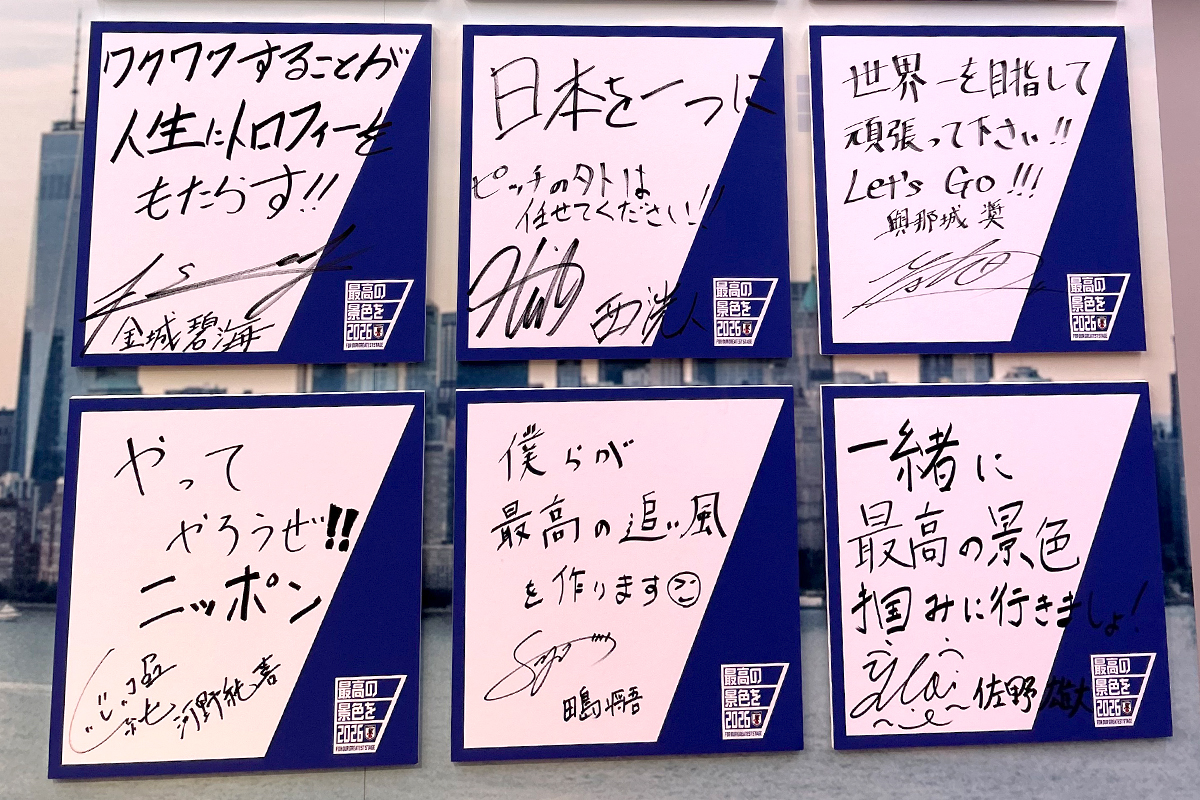 ワクワクすることが
人生にトロフィーを
もたらす!!
金城碧海
最高の
景色を
2026
FOR OUR GREATEST STAGE
日本を一つに
ピッチの外は
任せてください!!
西洸人
最高の
景色を
2026
FOR OUR GREATEST STAGE
世界一を目指して
頑張って下さい!!
Let's Go!!!
與那城 奨
最高の
景色を
2026
FOR OUR GREATEST STAGE
やって
やろうぜ!!
ニッポン
河野純喜
最高の
景色を
2026
FOR OUR GREATEST STAGE
僕らが
最高の追い風
を作ります
田島将吾
最高の
景色を
2026
FOR OUR GREATEST STAGE
一緒に
最高の景色
掴みに行きましょ!
佐野雄大
最高の
景色を
2026
FOR OUR GREATEST STAGE